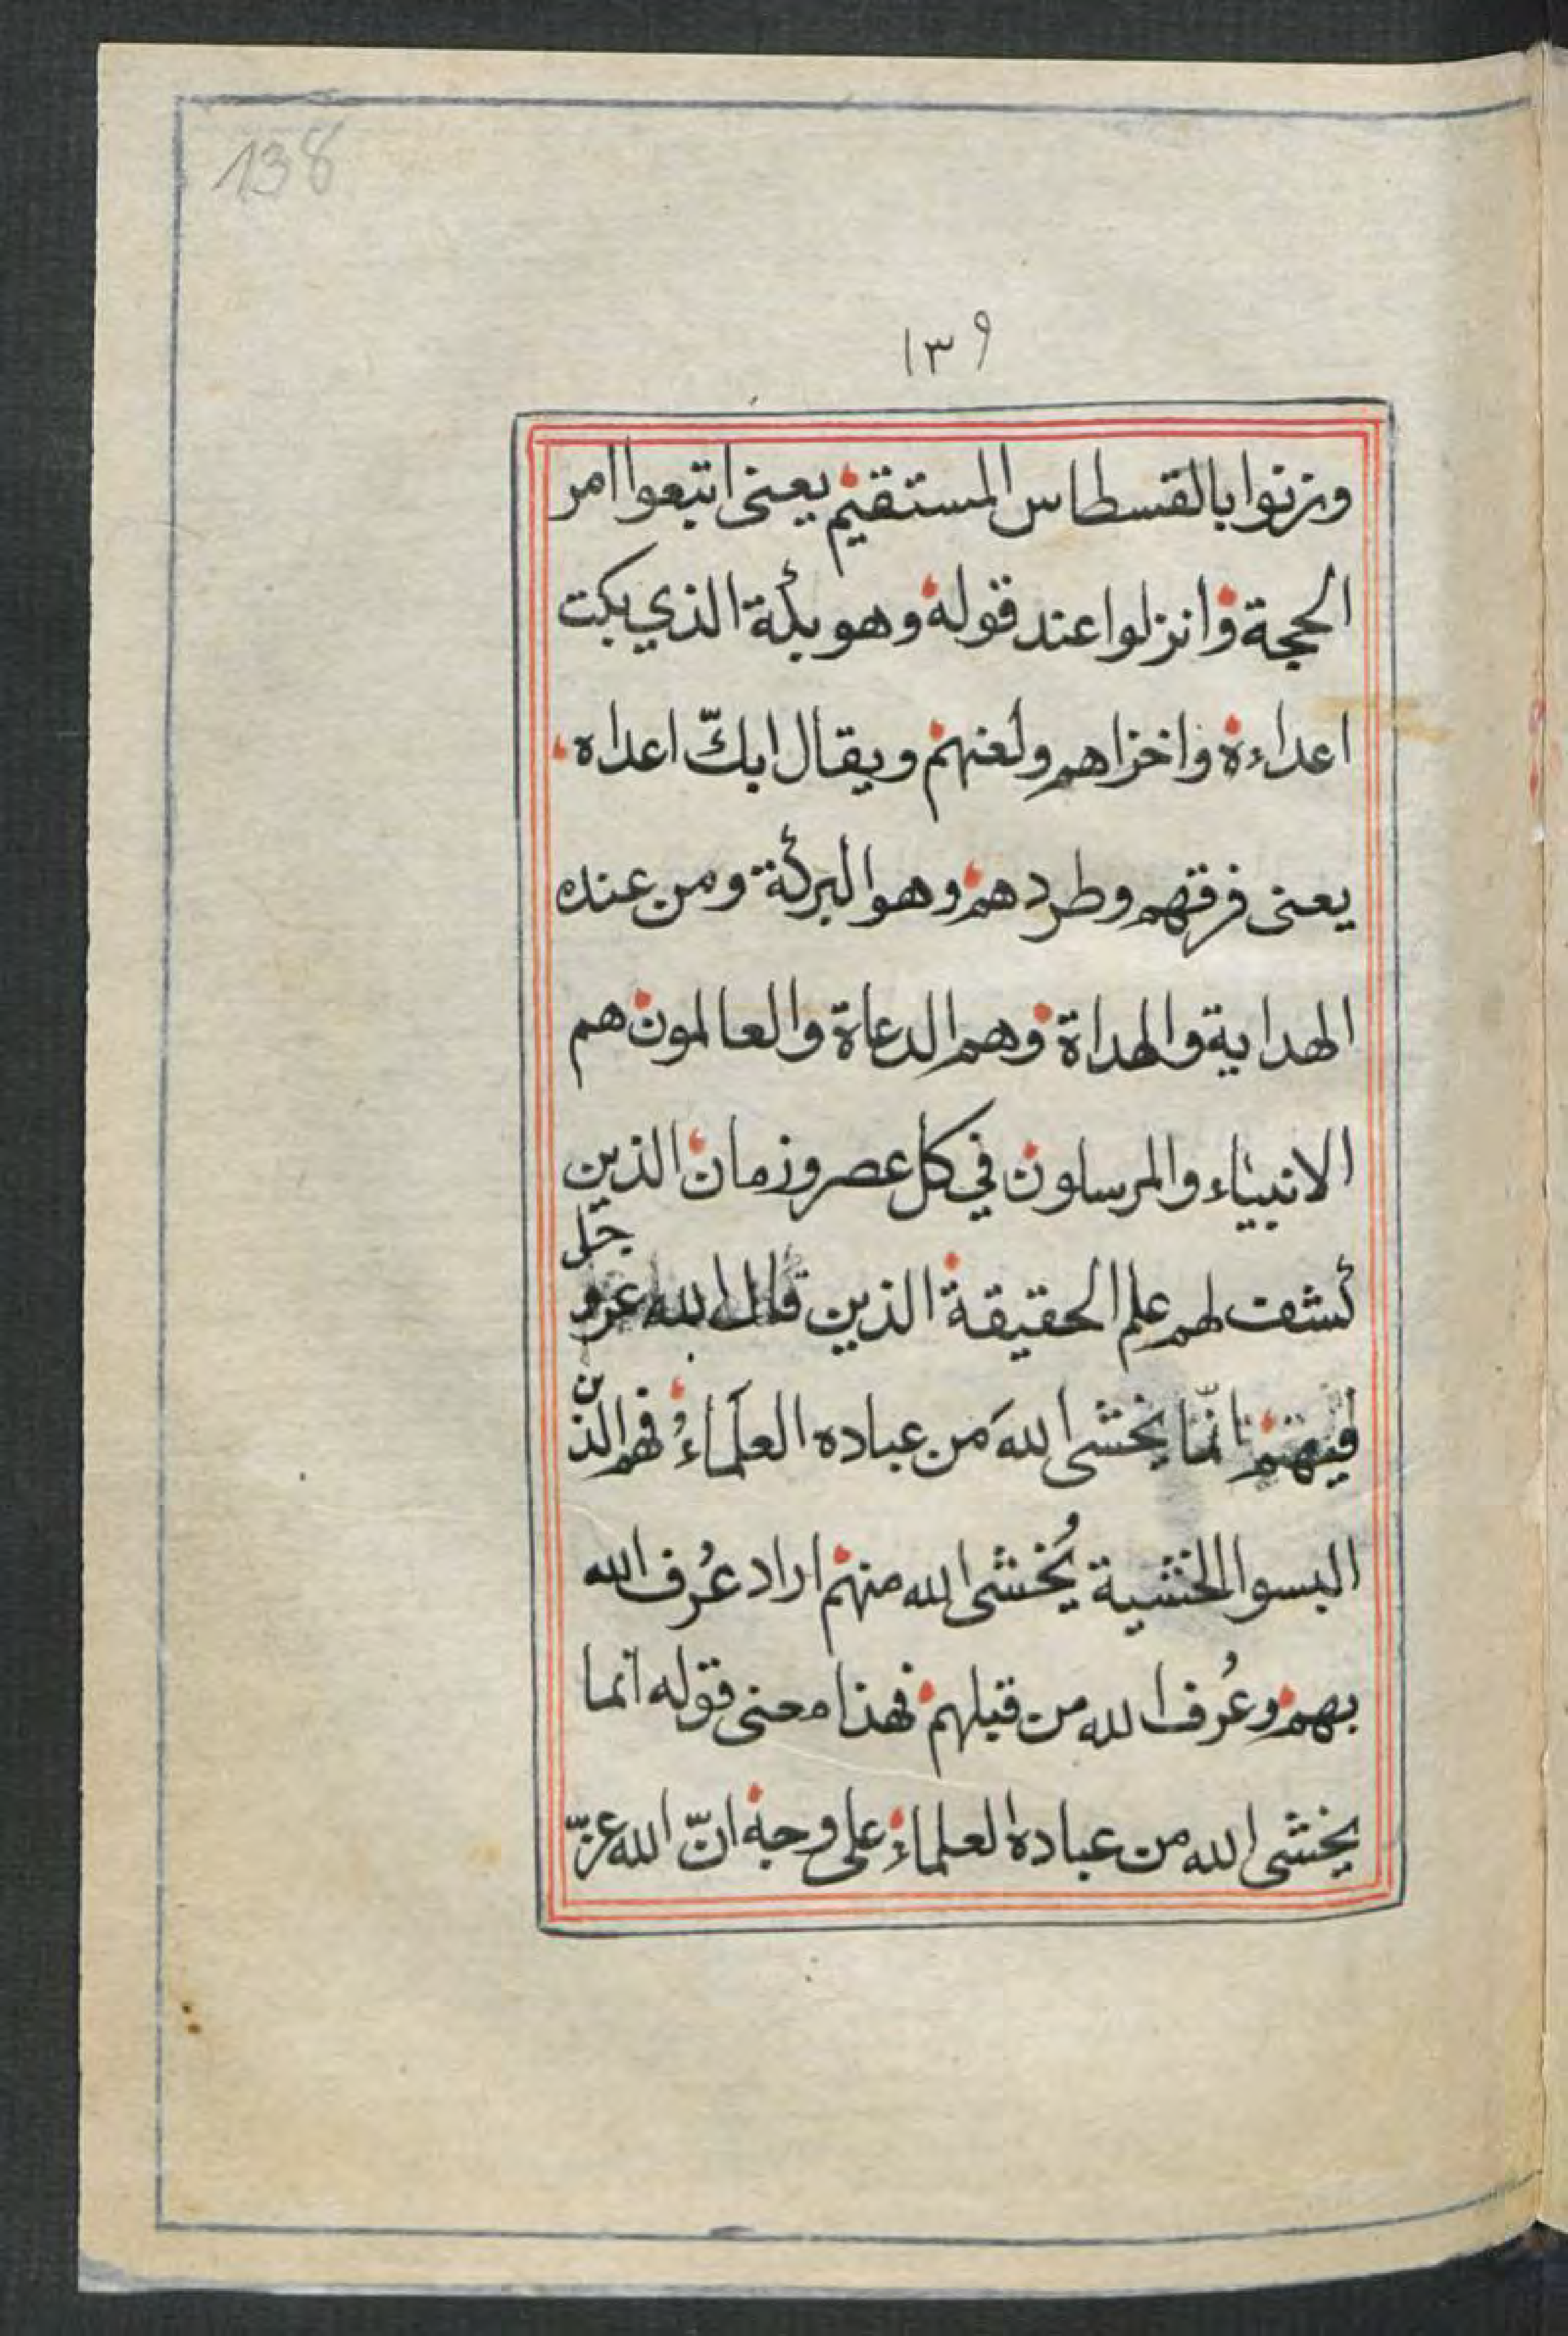 138
١٣٩
وزنوا بالقسطاس المستقيم يعنى اتبعوا امر
الحجة وانزلوا عند قوله وهو بكة الذي بكت
اعداءه واخزاهم ولعنهم ويقال ابكّ اعداه
يعنى فرقهم وطردهم وهو البركة ومن عنده
الهداية والهداة وهم الدعاة والعالمون هم
الانبياء والمرسلون في كل عصر وزمان الذين
كشفت لهم علم الحقيقة الذين قال الله عز و جل
فيهم انّما يخشى اللهَ من عباده العلَماءُ فهم الذين
البسوا الخشية يُخشى الله منهم اراد عُرف الله
بهم وعُرف الله من قبلهم فهذا معنى قوله انما
يخشى الله من عباده العلماء على وجه انّ الله عزّ